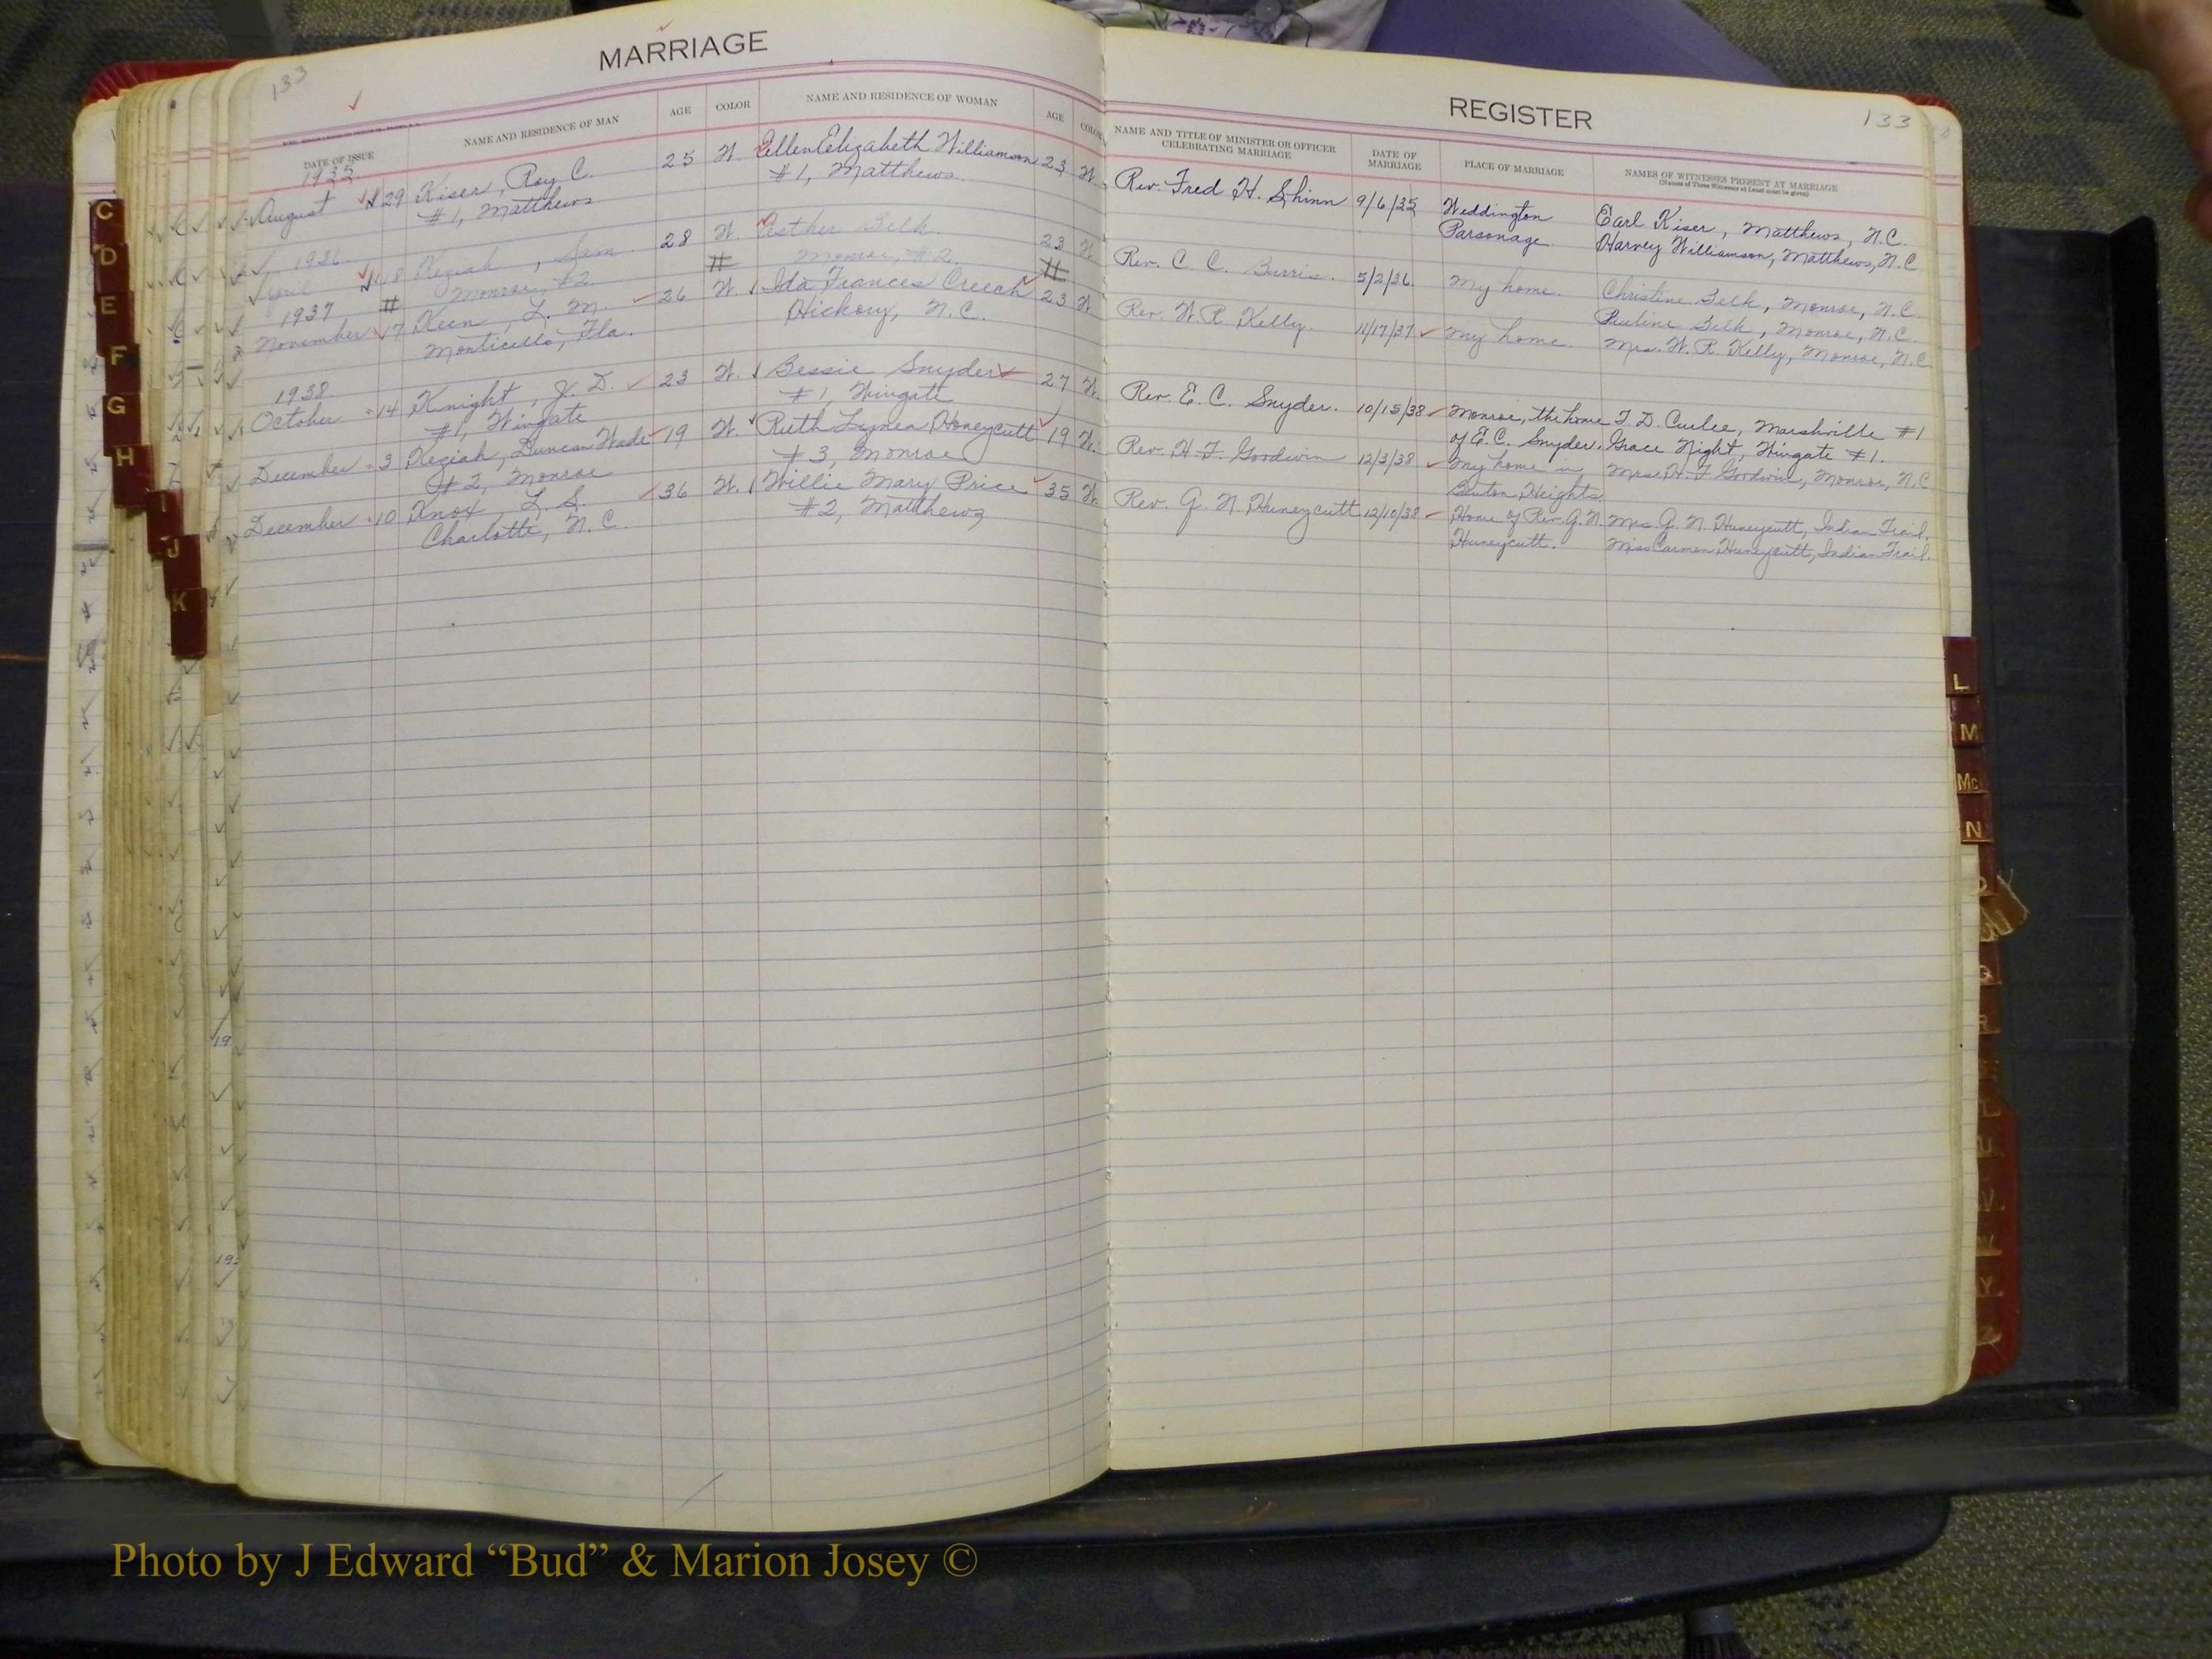 133
MARRIAGE
DATE OF ISSUE
NAME AND RESIDENCE OF MAN
AGE
COLOR
NAME AND RESIDENCE OF WOMAN
AGE
COLOR
1935
August 29 Kiser, Roy C. 25 W. Ellen Elizabeth Williamson 23 W.
#1, Matthews #1, Matthews
1936
April 18 Keziah, Sam 28 W. Esther Belk 23 W
Monroe, #2 Monroe, #2
1937
November 17 Keen, L. M. 26 W. Ida Frances Creech 23 W
Monticello, Fla. Hickory, N.C.
1938
October 14 Knight, J. D. 23 W. Bessie Snyder 27 W.
#1, Wingate #1, Wingate
December 3 Keziah, Duncan Wade 19 W. Ruth Honeycutt 19 W.
#2, Monroe #3, Monroe
December 10 Knox, L. S. 36 W. Willie Mary Price 35 W.
Charlotte, N.C. #2, Matthews
REGISTER
133
NAME AND TITLE OF MINISTER OR OFFICER
CELEBRATING MARRIAGE
DATE OF
MARRIAGE
PLACE OF MARRIAGE
NAMES OF WITNESSES PRESENT AT MARRIAGE
(Names of Three Witnesses at Least must be given)
Rev. Fred H. Shinn 9/6/35 Weddington Earl Kiser, Matthews, N.C.
Parsonage Harvey Williamson, Matthews, N.C
Rev. C. C. Burris. 5/2/36. My home. Christine Belk, Monroe, N.C.
Pauline Belk, Monroe, N.C.
Rev. W. R. Kelly. 11/17/37 My home. Mrs. W. R. Kelly, Monroe, N.C
Rev. E. C. Snyder. 10/15/38 Monroe, the home T. D. Curlee, Marshville #1
of E.C. Snyder. Grace Night, Wingate #1.
Rev. H. F. Goodwin 12/3/38 My home in Mrs. H. F. Goodwin, Monroe, N.C
Benton Heights.
Rev. G. N. Huneycutt 12/10/38 Home of Rev. G. N. Mrs. G. N. Huneycutt, Indian Trail.
Huneycutt. Miss Carmen Huneycutt, Indian Trail.
C
D
E
F
G
H
I
J
K
L
M
Mc
N
Q
R
U
V
W
Y
Photo by J Edward “Bud” & Marion Josey ©